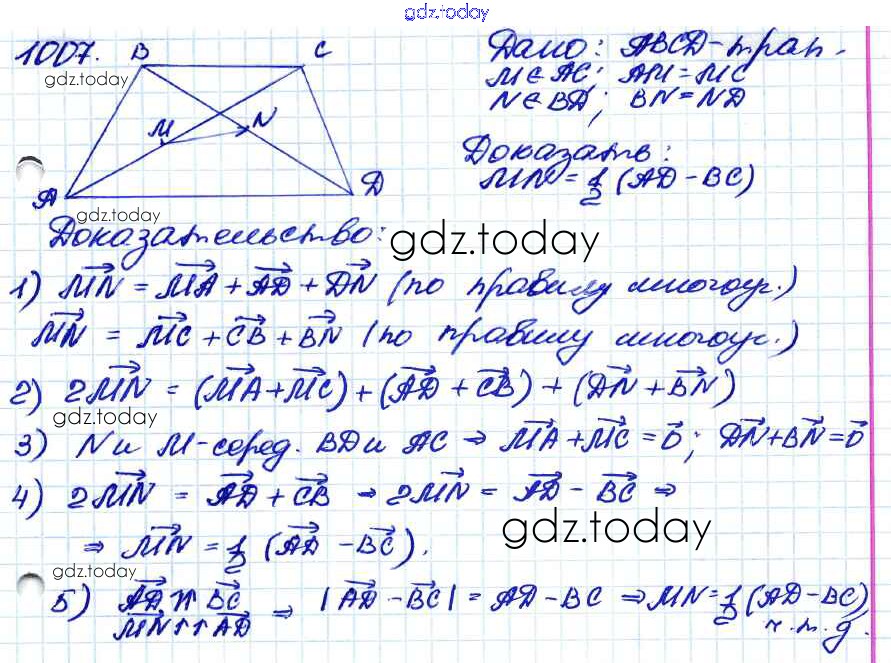 gdz.today
1007. B C
gdz.today
M N
A D
Дано: ABCD-трап.
M∈AC; AM=MC
N∈BD; BN=ND
Доказать:
MN=1/2(AD-BC)
gdz.today
Доказательство:
gdz.today
1) MN⃗ = MA⃗ + AD⃗ + DN⃗ (по правилу многоуг.)
MN⃗ = MC⃗ + CB⃗ + BN⃗ (по правилу многоуг.)
2) 2MN⃗ = (MA⃗ + MC⃗) + (AD⃗ + CB⃗) + (DN⃗ + BN⃗)
gdz.today
3) N и M-серед. BD и AC ⇒ MA⃗ + MC⃗ = 0⃗; DN⃗ + BN⃗ = 0⃗
4) 2MN⃗ = AD⃗ + CB⃗ → 2MN⃗ = AD⃗ - BC⃗ ⇒
gdz.today
⇒ MN⃗ = 1/2 (AD⃗ - BC⃗).
gdz.today
5) AD⃗ ↑↑ BC⃗ ⇒ |AD⃗ - BC⃗| = AD - BC ⇒ MN=1/2(AD-BC)
MN⃗ ↑↑ AD⃗ ч.т.д.